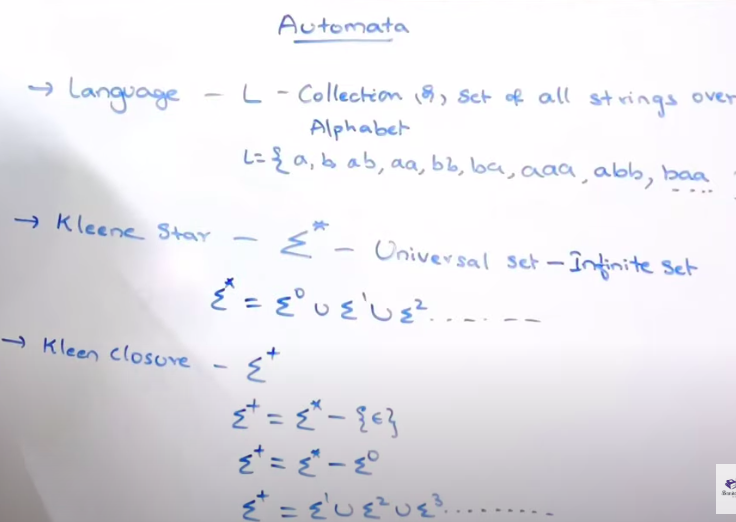 Automata
→ Language - L - Collection (or) set of all strings over
Alphabet
L = { a, b ab, aa, bb, ba, aaa, abb, baa ....
→ Kleene Star - Σ* - Universal set - Infinite set
Σ* = Σ⁰ ∪ Σ¹ ∪ Σ² .......
→ Kleen closure - Σ⁺
Σ⁺ = Σ* - {ϵ}
Σ⁺ = Σ* - Σ⁰
Σ⁺ = Σ¹ ∪ Σ² ∪ Σ³ ..........